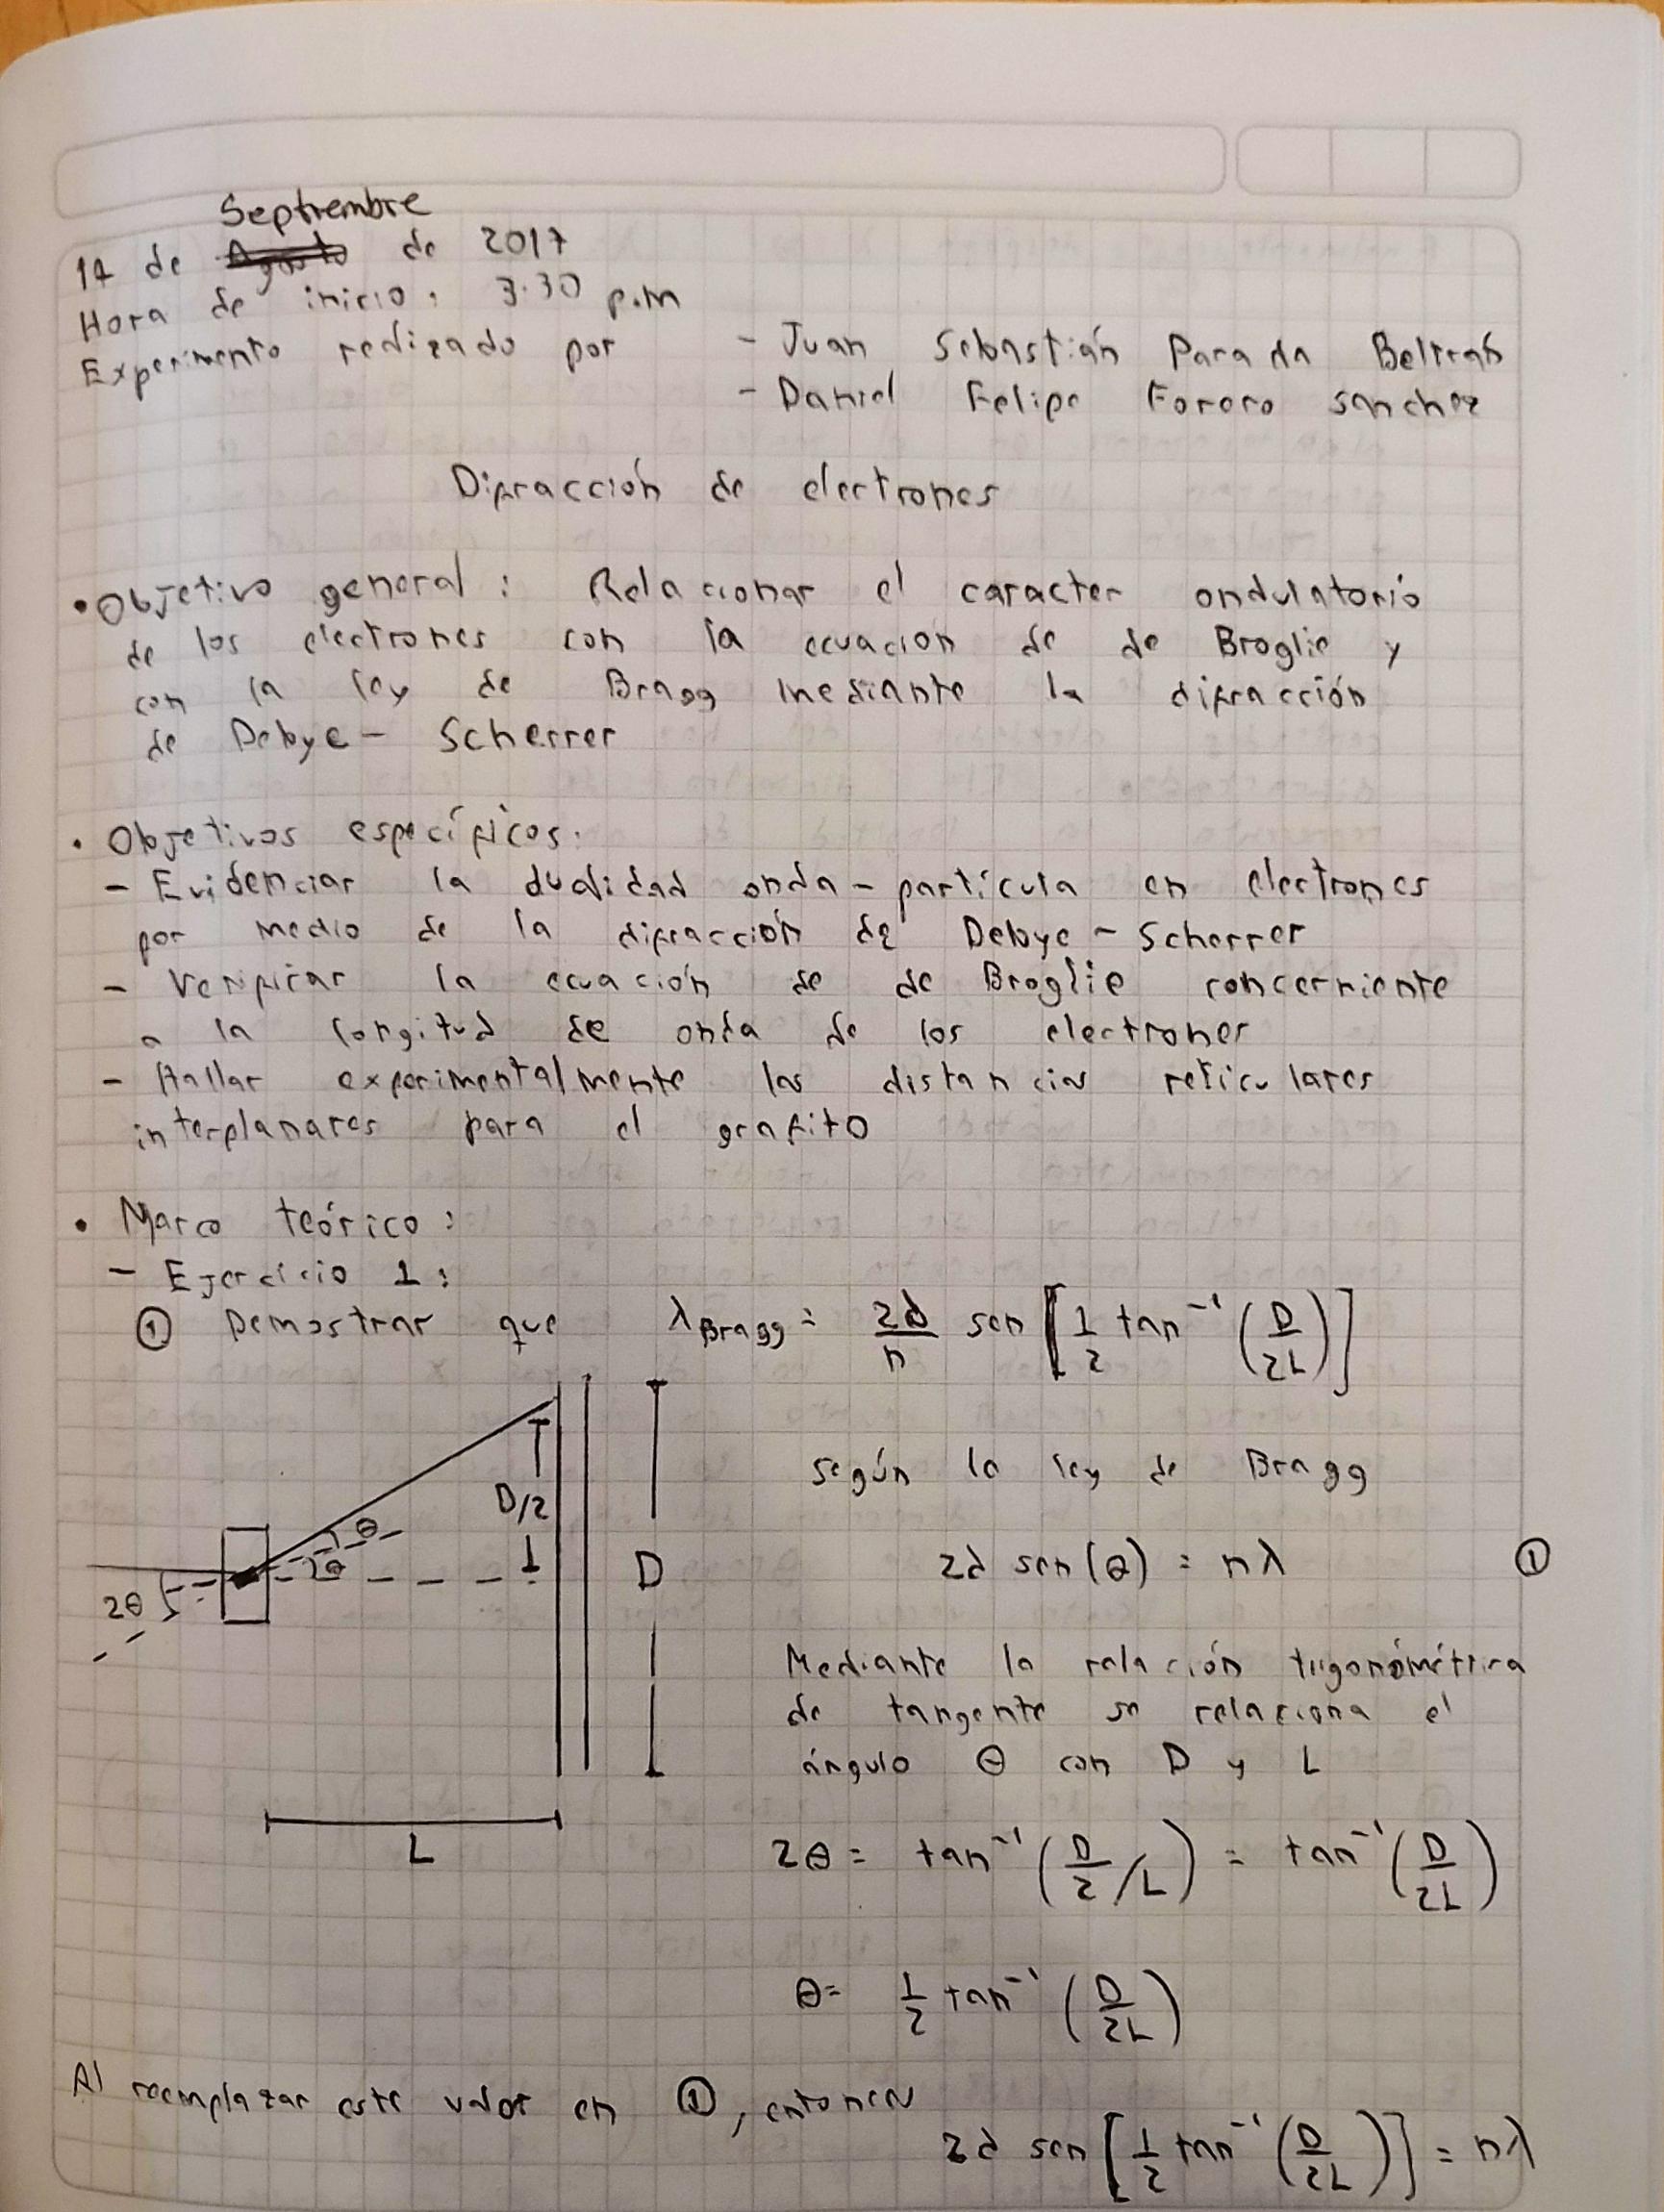 Septiembre
14 de Agosto de 2017
Hora de inicio: 3:30 p.m
Experimento realizado por - Juan Sebastián Parada Beltrán
- Daniel Felipe Forero Sanchez
Difracción de electrones
• Objetivo general: Relacionar el caracter ondulatorio
de los electrones con la ecuación de de Broglie y
con la ley de Bragg mediante la difracción
de Debye - Scherrer
• Objetivos específicos:
- Evidenciar la dualidad onda - partícula en electrones
por medio de la difracción de Debye - Scherrer
- Verificar la ecuación de de Broglie concerniente
a la longitud de onda de los electrones
- Hallar experimentalmente las distancias reticulares
interplanares para el grafito
• Marco teórico:
- Ejercicio 1:
① Demostrar que λ_Bragg = 2d/n sen [1/2 tan⁻¹ (D/2L)]
D/2
θ
2θ
2θ
D
L
según la ley de Bragg
2d sen(θ) = nλ ①
Mediante la relación trigonométrica
de tangente se relaciona el
ángulo θ con D y L
2θ = tan⁻¹ (D/2 / L) = tan⁻¹ (D/2L)
θ = 1/2 tan⁻¹ (D/2L)
Al reemplazar este valor en ①, entonces
2d sen [1/2 tan⁻¹ (D/2L)] = nλ